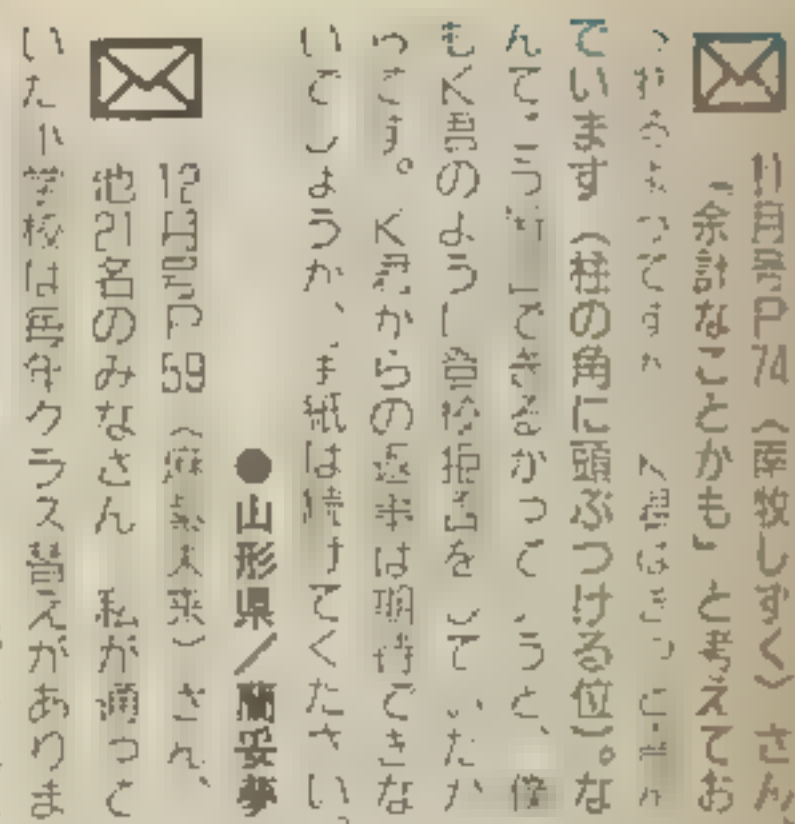 11月号P74（南牧しずく）さん
「余計なことかも」と考えてお
ってですか K君はきっと
ています（柱の角に頭ぶつける位）。な
んて、こう できるかって うと、僕
もK君のように登校拒否を していたか
らです。K君からの返事は期待できな
いでしょうが、手紙は続けてください。
●山形県／蘭妥夢
12月号P59（麻 未来）さん、
池21名のみなさん 私が通って
いた小学校は毎年クラス替えがありま